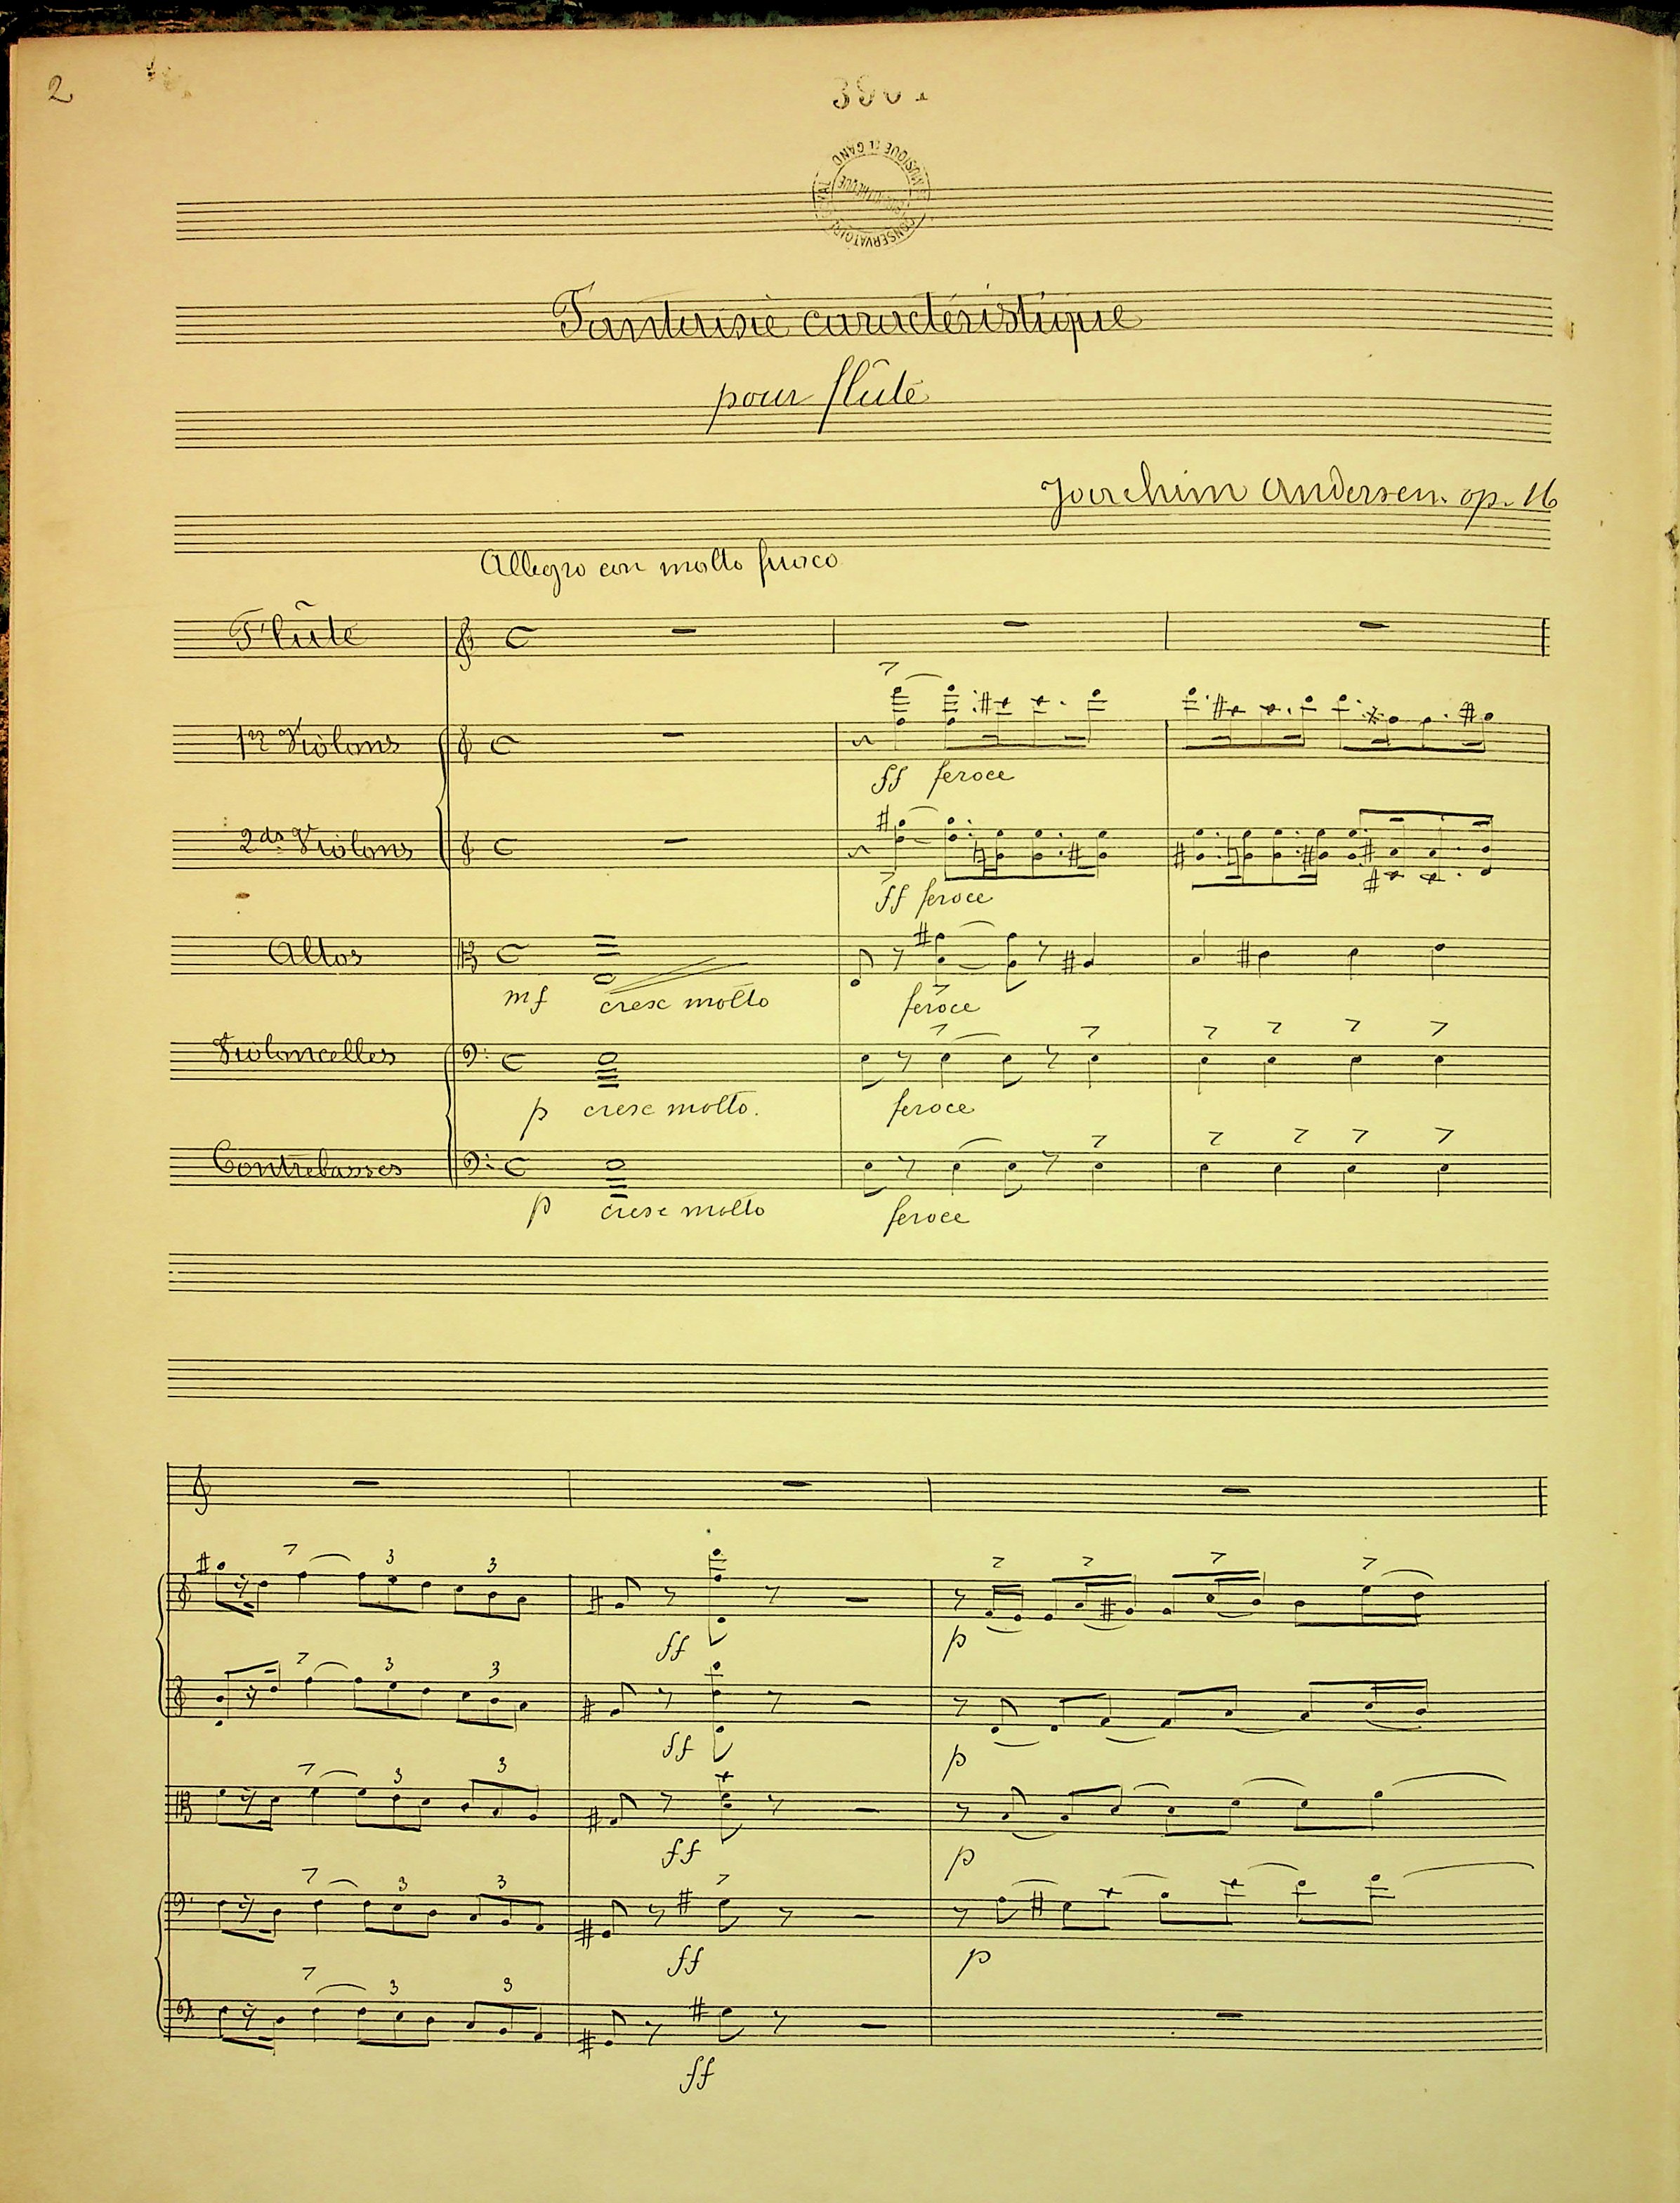 2
Fantaisie caractéristique
pour flûte
Joachim Andersen. op. 16
Allegro con molto fuoco
Flûte
1rs Violons
ff feroce
2ds Violons
ff feroce
Altos
mf cresc molto feroce
Violoncelles
p cresc molto. feroce
Contrebasses
p cresc molto feroce
3 3
ff p
3 3
ff p
3 3
ff p
3 3
ff p
3 3
ff